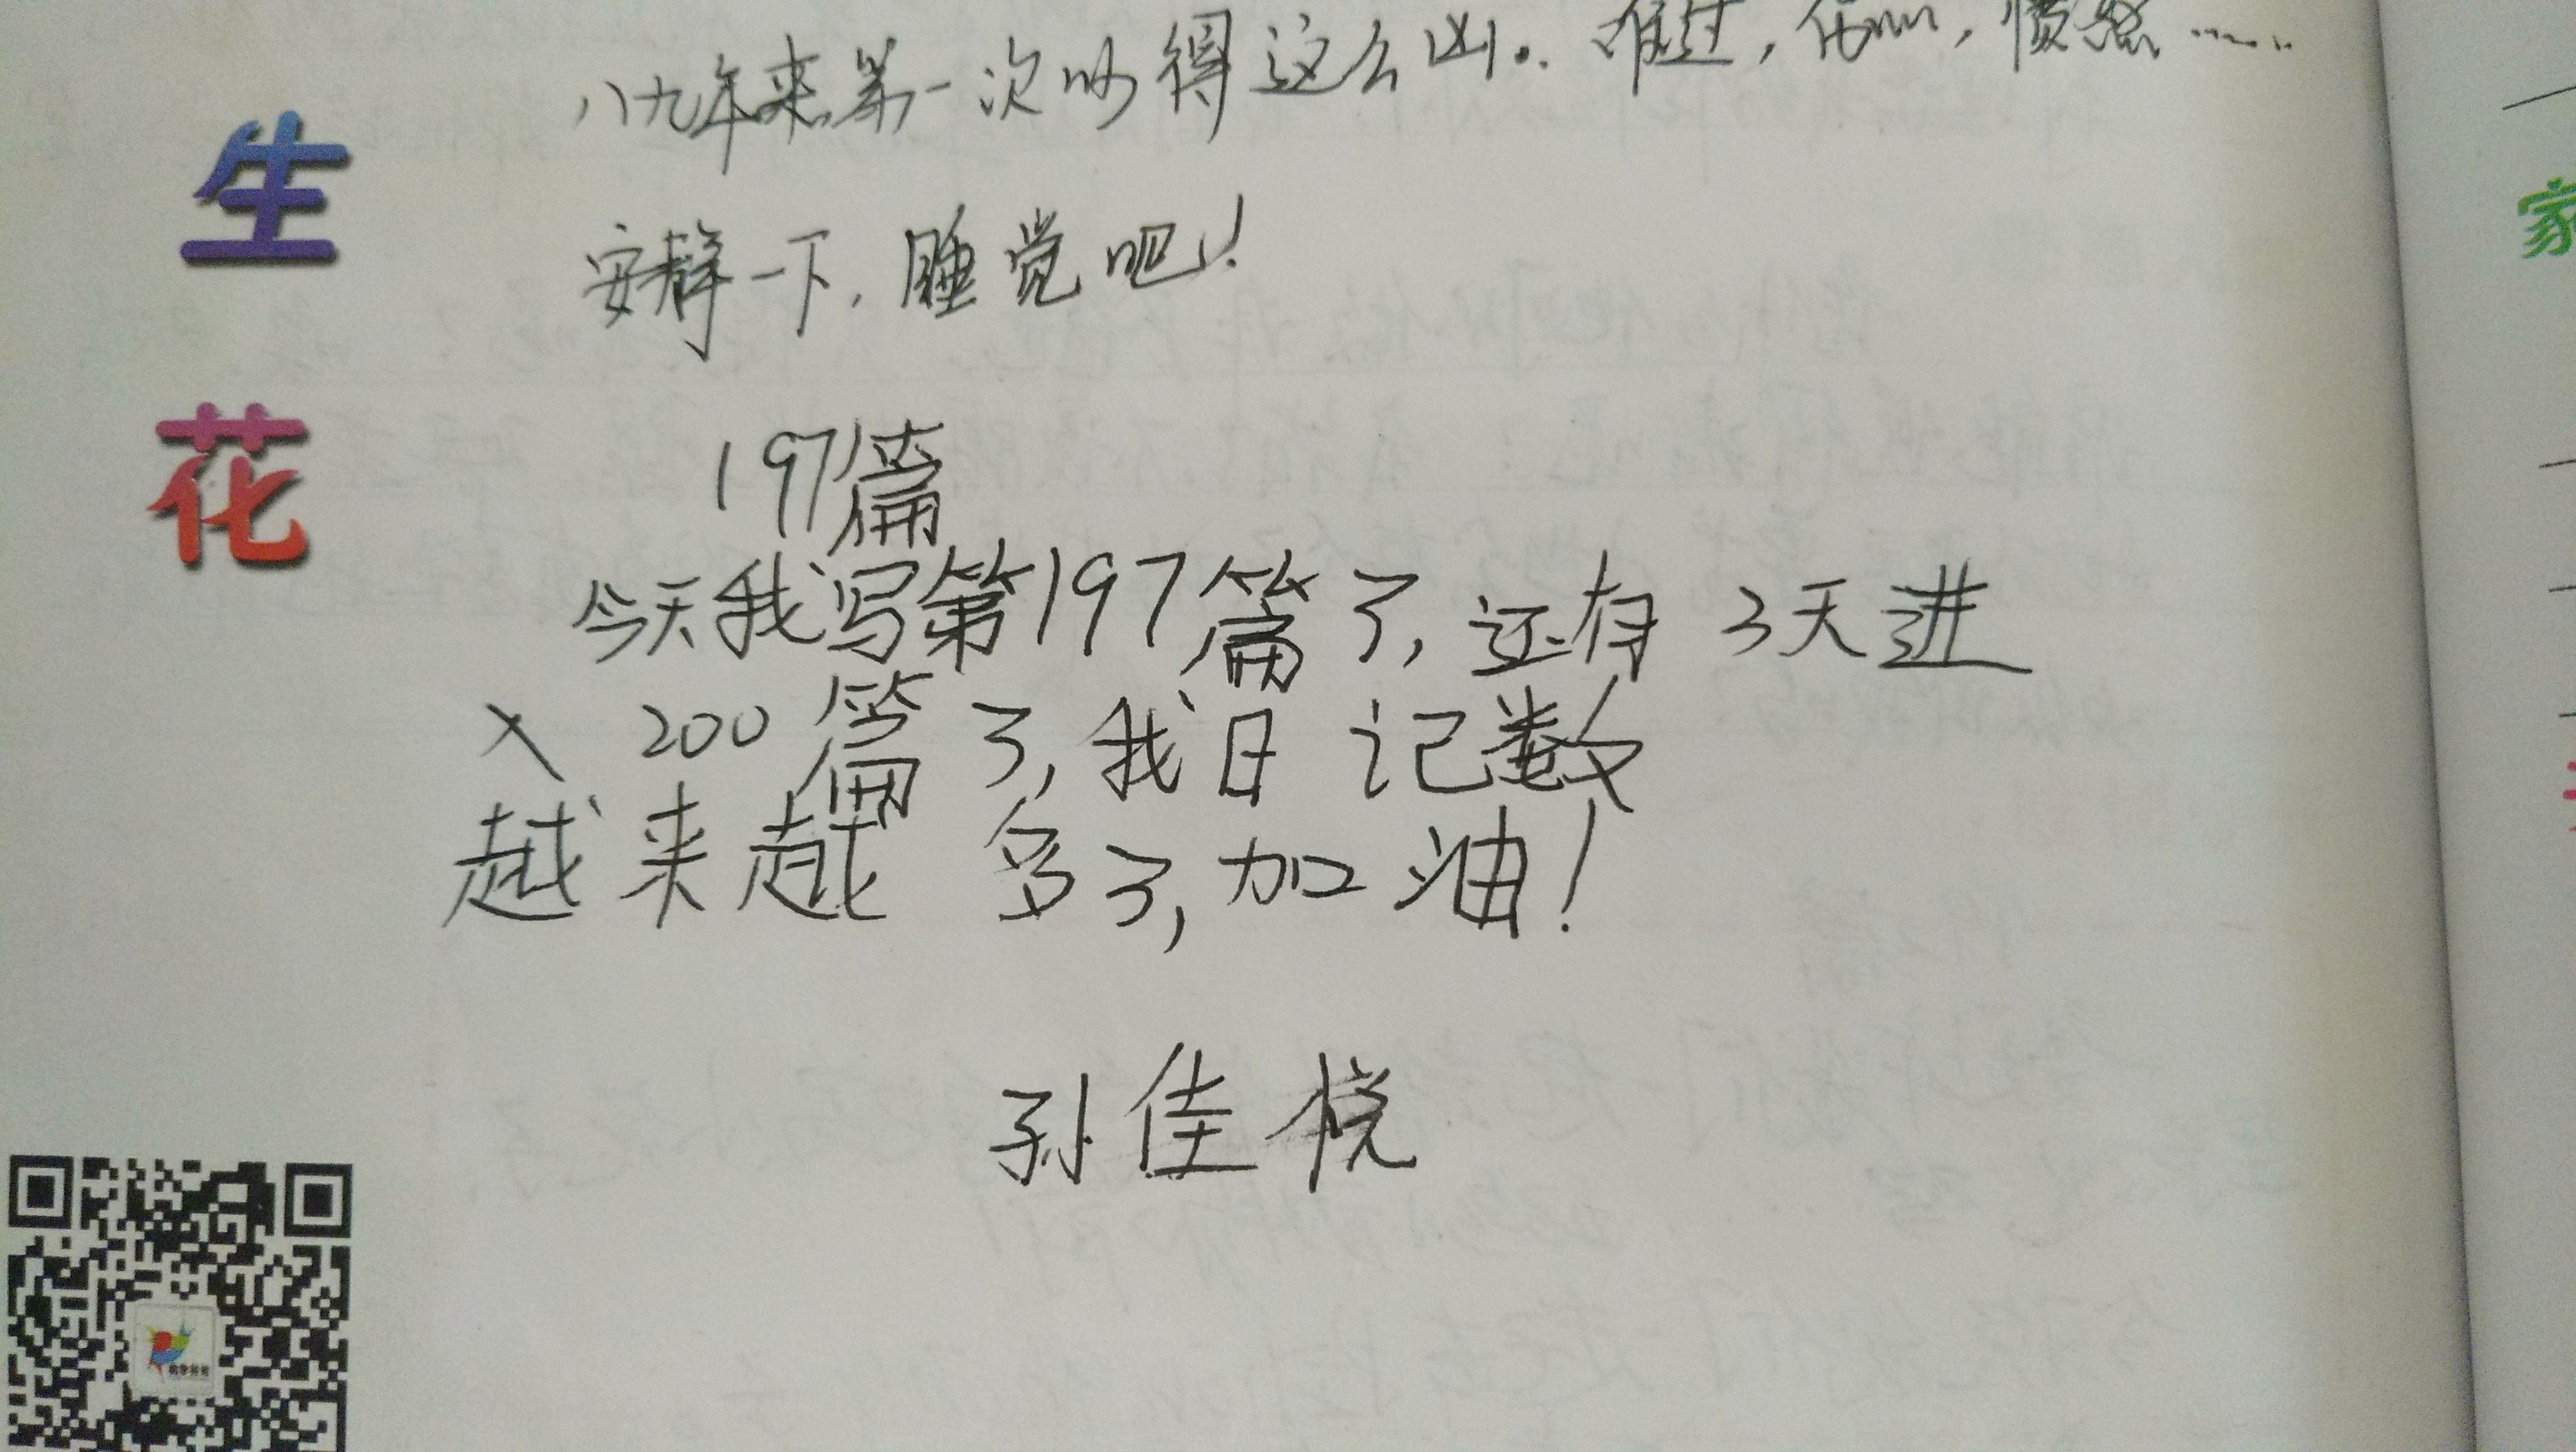 八九年来第一次吵得这么凶.. 难过,伤心,愤怒……
安静一下,睡觉吧!
生
花
197篇
今天我写第197篇了,还有3天进
入 200篇了,我日记数
越来越 多了,加油!
孙佳悦
家